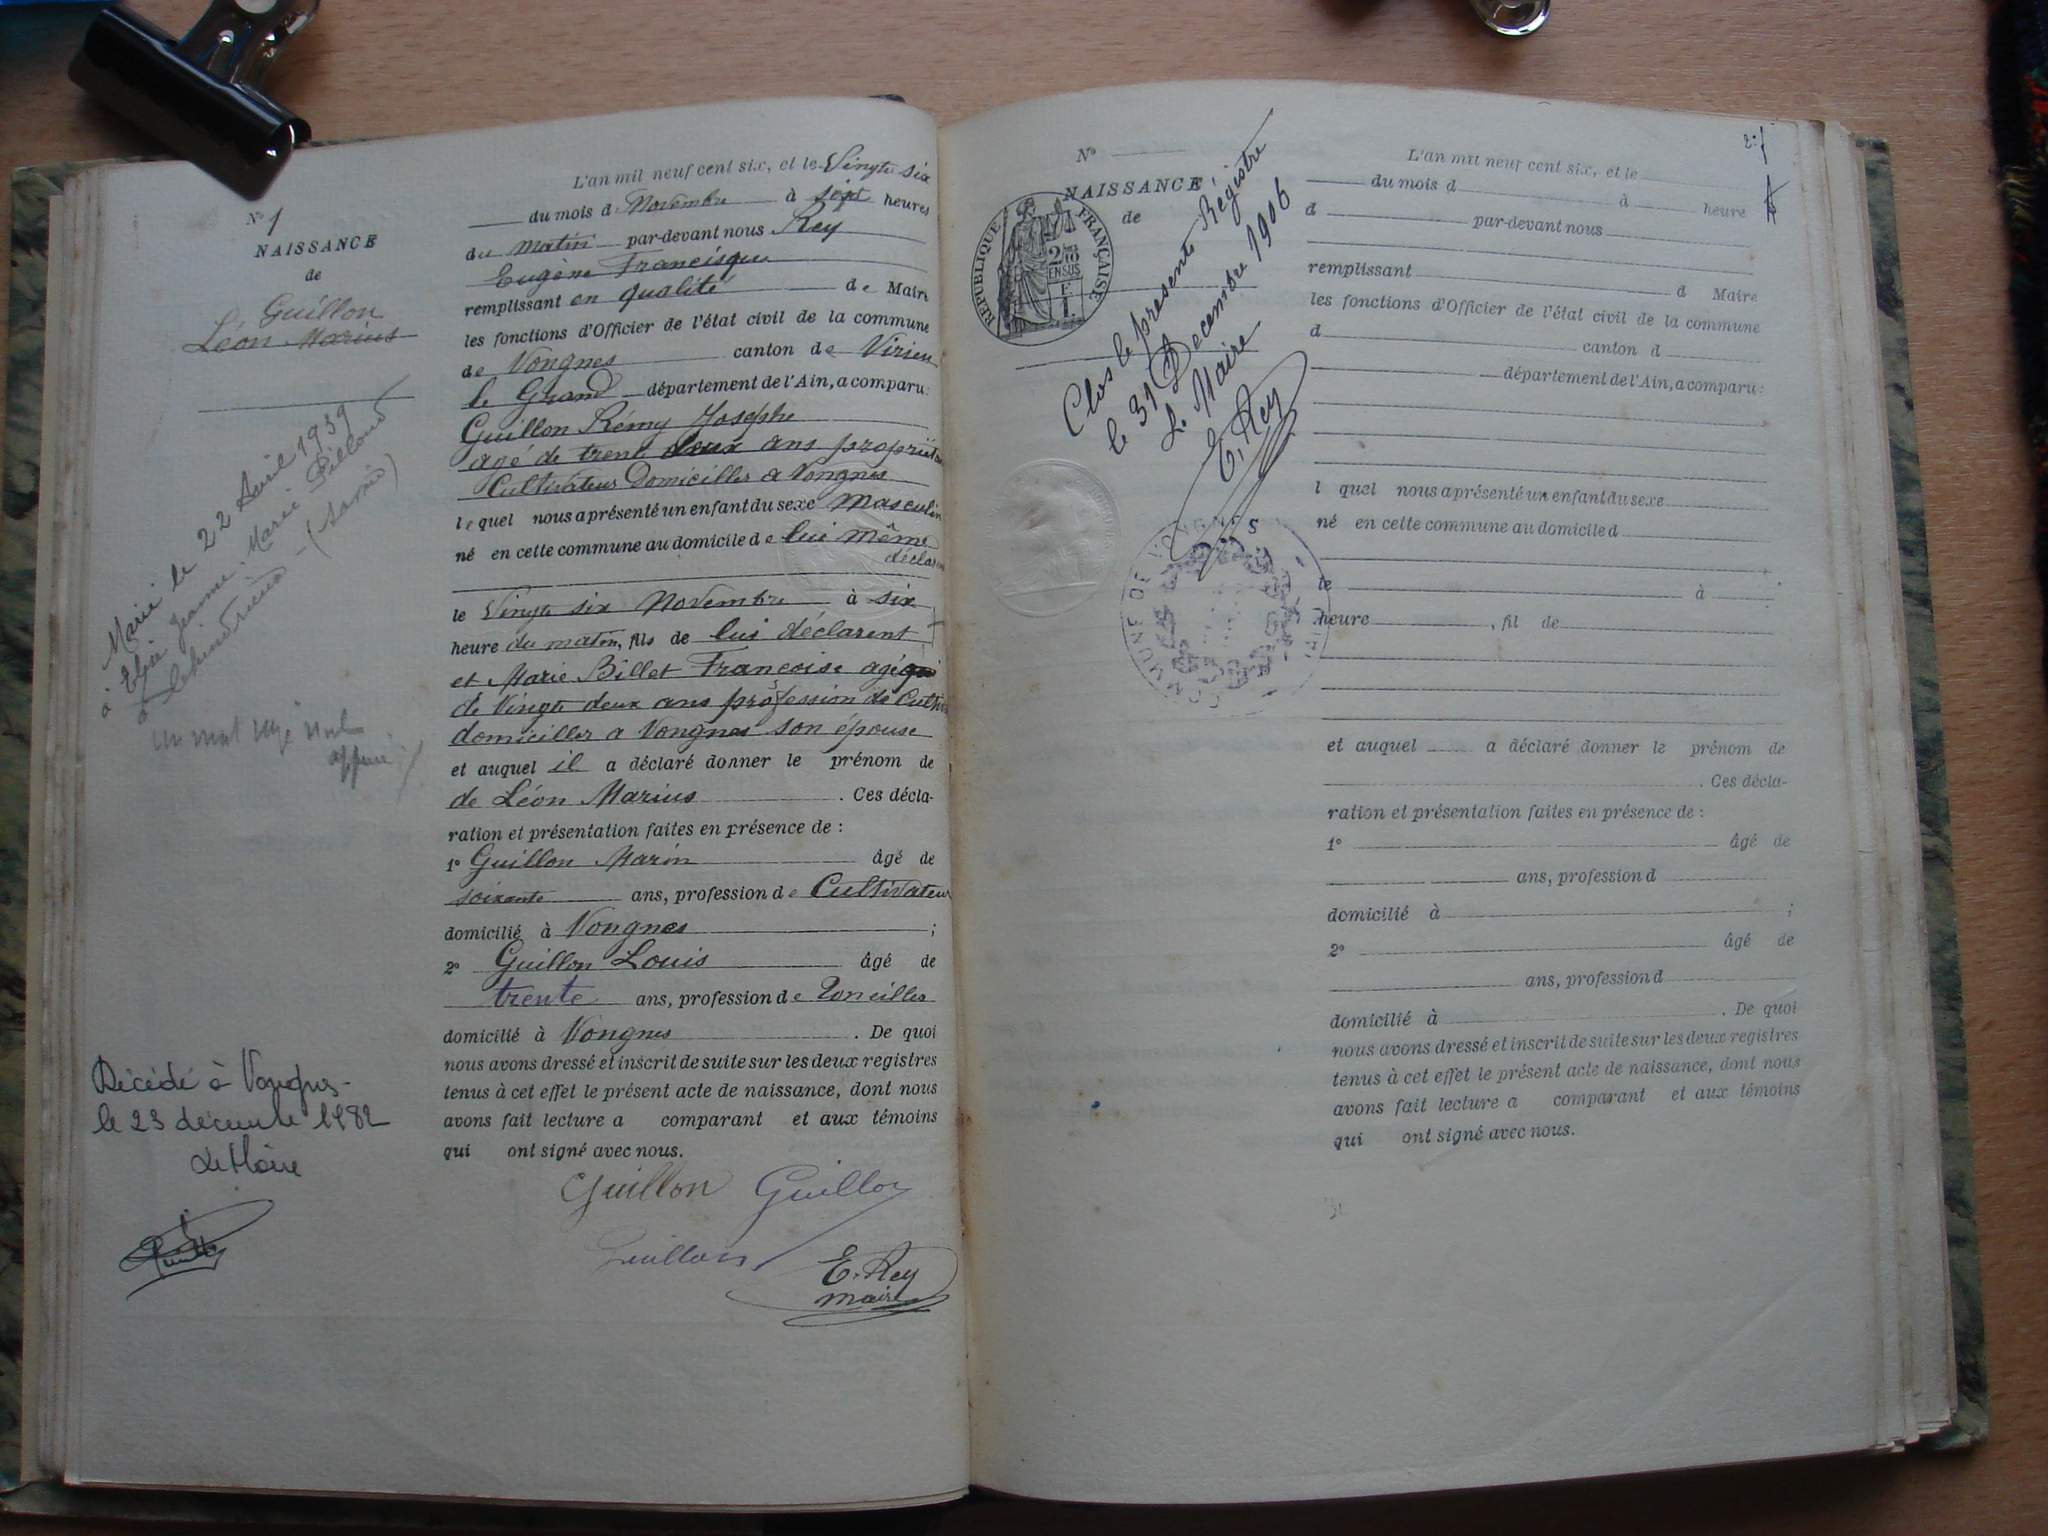 N° 1
NAISSANCE
de
Guillon
Léon Marius
Marié le 22 Avril 1939
à Elise Jeanne Marie Pilloud
à Chindrieux - (Savoie)
un mot rayé nul
Décédé à Vongnes
le 23 décembre 1982
Le Maire
L'an mil neuf cent six, et le Vingte six
du mois de Novembre à sept heures
du Matin par-devant nous Rey
Eugène Francisque
remplissant en qualité de Maire
les fonctions d'Officier de l'état civil de la commune
de Vongnes canton de Virieu
le Grand département de l'Ain, a comparu:
Guillon Rémy Josephe
agé de trent deux ans propriét
Cultivateur Domiciller a Vongnes
lequel nous a présenté un enfant du sexe Masculin
né en cette commune au domicile de lui même
déclar
le Vingte six Novembre à six
heure du maten, fils de lui déclarent
et Marie Billet Francoise agé
de Vingte deux ans profession de Cultiv
domiciller a Vongnes son épouse
et auquel il a déclaré donner le prénom de
de Léon Marius . Ces décla-
ration et présentation faites en présence de :
1° Guillon Marin âgé de
soixante ans, profession de Cultivateur
domicilié à Vongnes ;
2° Guillon Louis âgé de
trente ans, profession de
domicilié à Vongnes . De quoi
nous avons dressé et inscrit de suite sur les deux registres
tenus à cet effet le présent acte de naissance, dont nous
avons fait lecture a comparant et aux témoins
qui ont signé avec nous.
Guillon Guillon
Guillon
E. Rey
maire
2
N°
NAISSANCE
de
REPUBLIQUE FRANÇAISE
2/10 EN SUS
F
1
Clos le présente Régistre
le 31 Decembre 1906
Le Maire
E. Rey
COMMUNE DE VONGNES
L'an mil neuf cent six, et le
du mois d à heure
d par-devant nous
remplissant d Maire
les fonctions d'Officier de l'état civil de la commune
d canton d
département de l'Ain, a comparu:
l quel nous a présenté un enfant du sexe
né en cette commune au domicile d
le à
heure , fil de
et auquel a déclaré donner le prénom de
. Ces décla-
ration et présentation faites en présence de :
1° âgé de
ans, profession d
domicilié à ;
2° âgé de
ans, profession d
domicilié à . De quoi
nous avons dressé et inscrit de suite sur les deux registres
tenus à cet effet le présent acte de naissance, dont nous
avons fait lecture a comparant et aux témoins
qui ont signé avec nous.